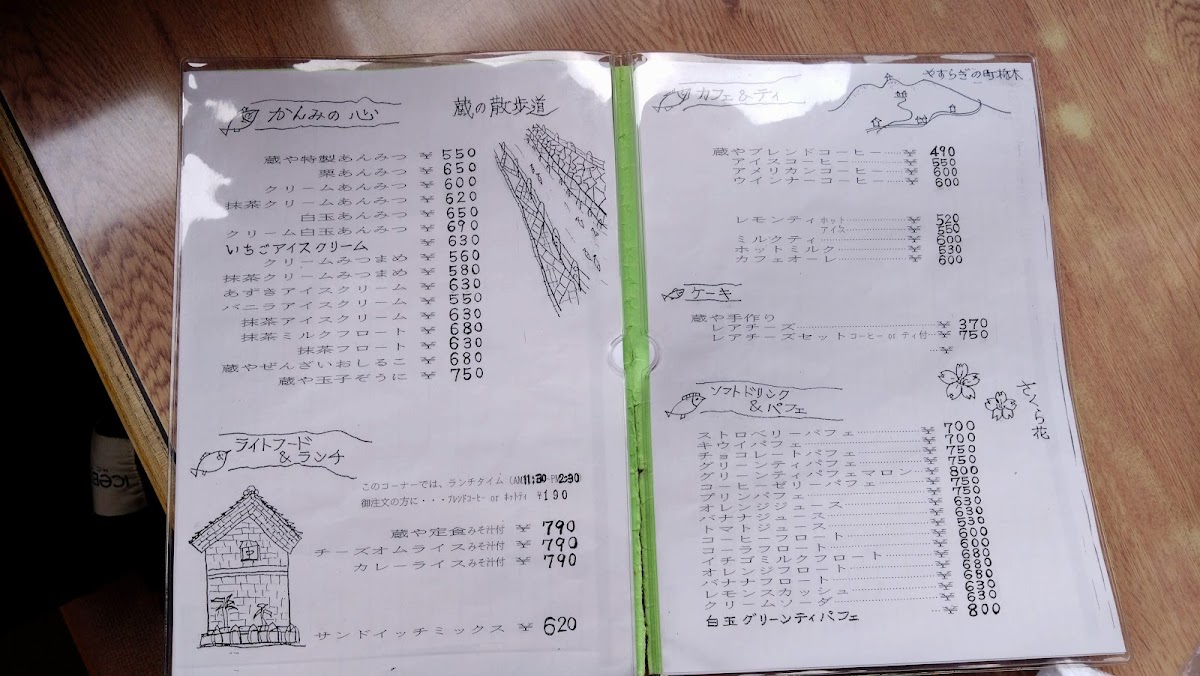 かんみの心
蔵の散歩道
蔵や特製あんみつ ¥ 550
栗あんみつ ¥ 650
クリームあんみつ ¥ 600
抹茶クリームあんみつ ¥ 620
白玉あんみつ ¥ 650
クリーム白玉あんみつ ¥ 690
いちごアイスクリーム ¥ 630
クリームみつまめ ¥ 560
抹茶クリームみつまめ ¥ 580
あずきアイスクリーム ¥ 630
バニラアイスクリーム ¥ 550
抹茶アイスクリーム ¥ 630
抹茶ミルクフロート ¥ 680
抹茶フロート ¥ 630
蔵やぜんざいおしるこ ¥ 680
蔵や玉子ぞうに ¥ 750
ライトフード
&ランチ
このコーナーでは、ランチタイム (AM11:30-PM2:30
御注文の方に・・・ブレンドコーヒー or ホットティ ¥190
蔵や定食みそ汁付 ¥ 790
チーズオムライスみそ汁付 ¥ 790
カレーライスみそ汁付 ¥ 790
サンドイッチミックス ¥ 620
カフェ&ティ
やすらぎの町栃木
蔵やブレンドコーヒー……¥ 490
アイスコーヒー……¥ 550
アメリカンコーヒー……¥ 600
ウインナーコーヒー……¥ 600
レモンティホット……¥ 520
アイス……¥ 550
ミルクティ……¥ 600
ホットミルク……¥ 530
カフェオーレ……¥ 600
ケーキ
蔵や手作り
レアチーズ……¥ 370
レアチーズセットコーヒー or ティ付…¥ 750
…¥
ソフトドリンク
&パフェ
さくら花
ストロベリーパフェ……¥ 700
キウイパフェ……¥ 700
チョコレートパフェ……¥ 750
グリーンティパフェ……¥ 750
グリーンティパフェマロン…¥ 800
コーヒーゼリーパフェ……¥ 750
プリンパフェ……¥ 750
オレンジジュース……¥ 630
バナナジュース……¥ 630
トマトジュース……¥ 530
コーヒーフロート……¥ 600
コーラフロート……¥ 600
イチゴミルクフロート……¥ 680
オレンジフロート……¥ 680
バナナフロート……¥ 680
レモンスカッシュ……¥ 630
クリームソーダ……¥ 630
白玉グリーンティパフェ …¥ 800